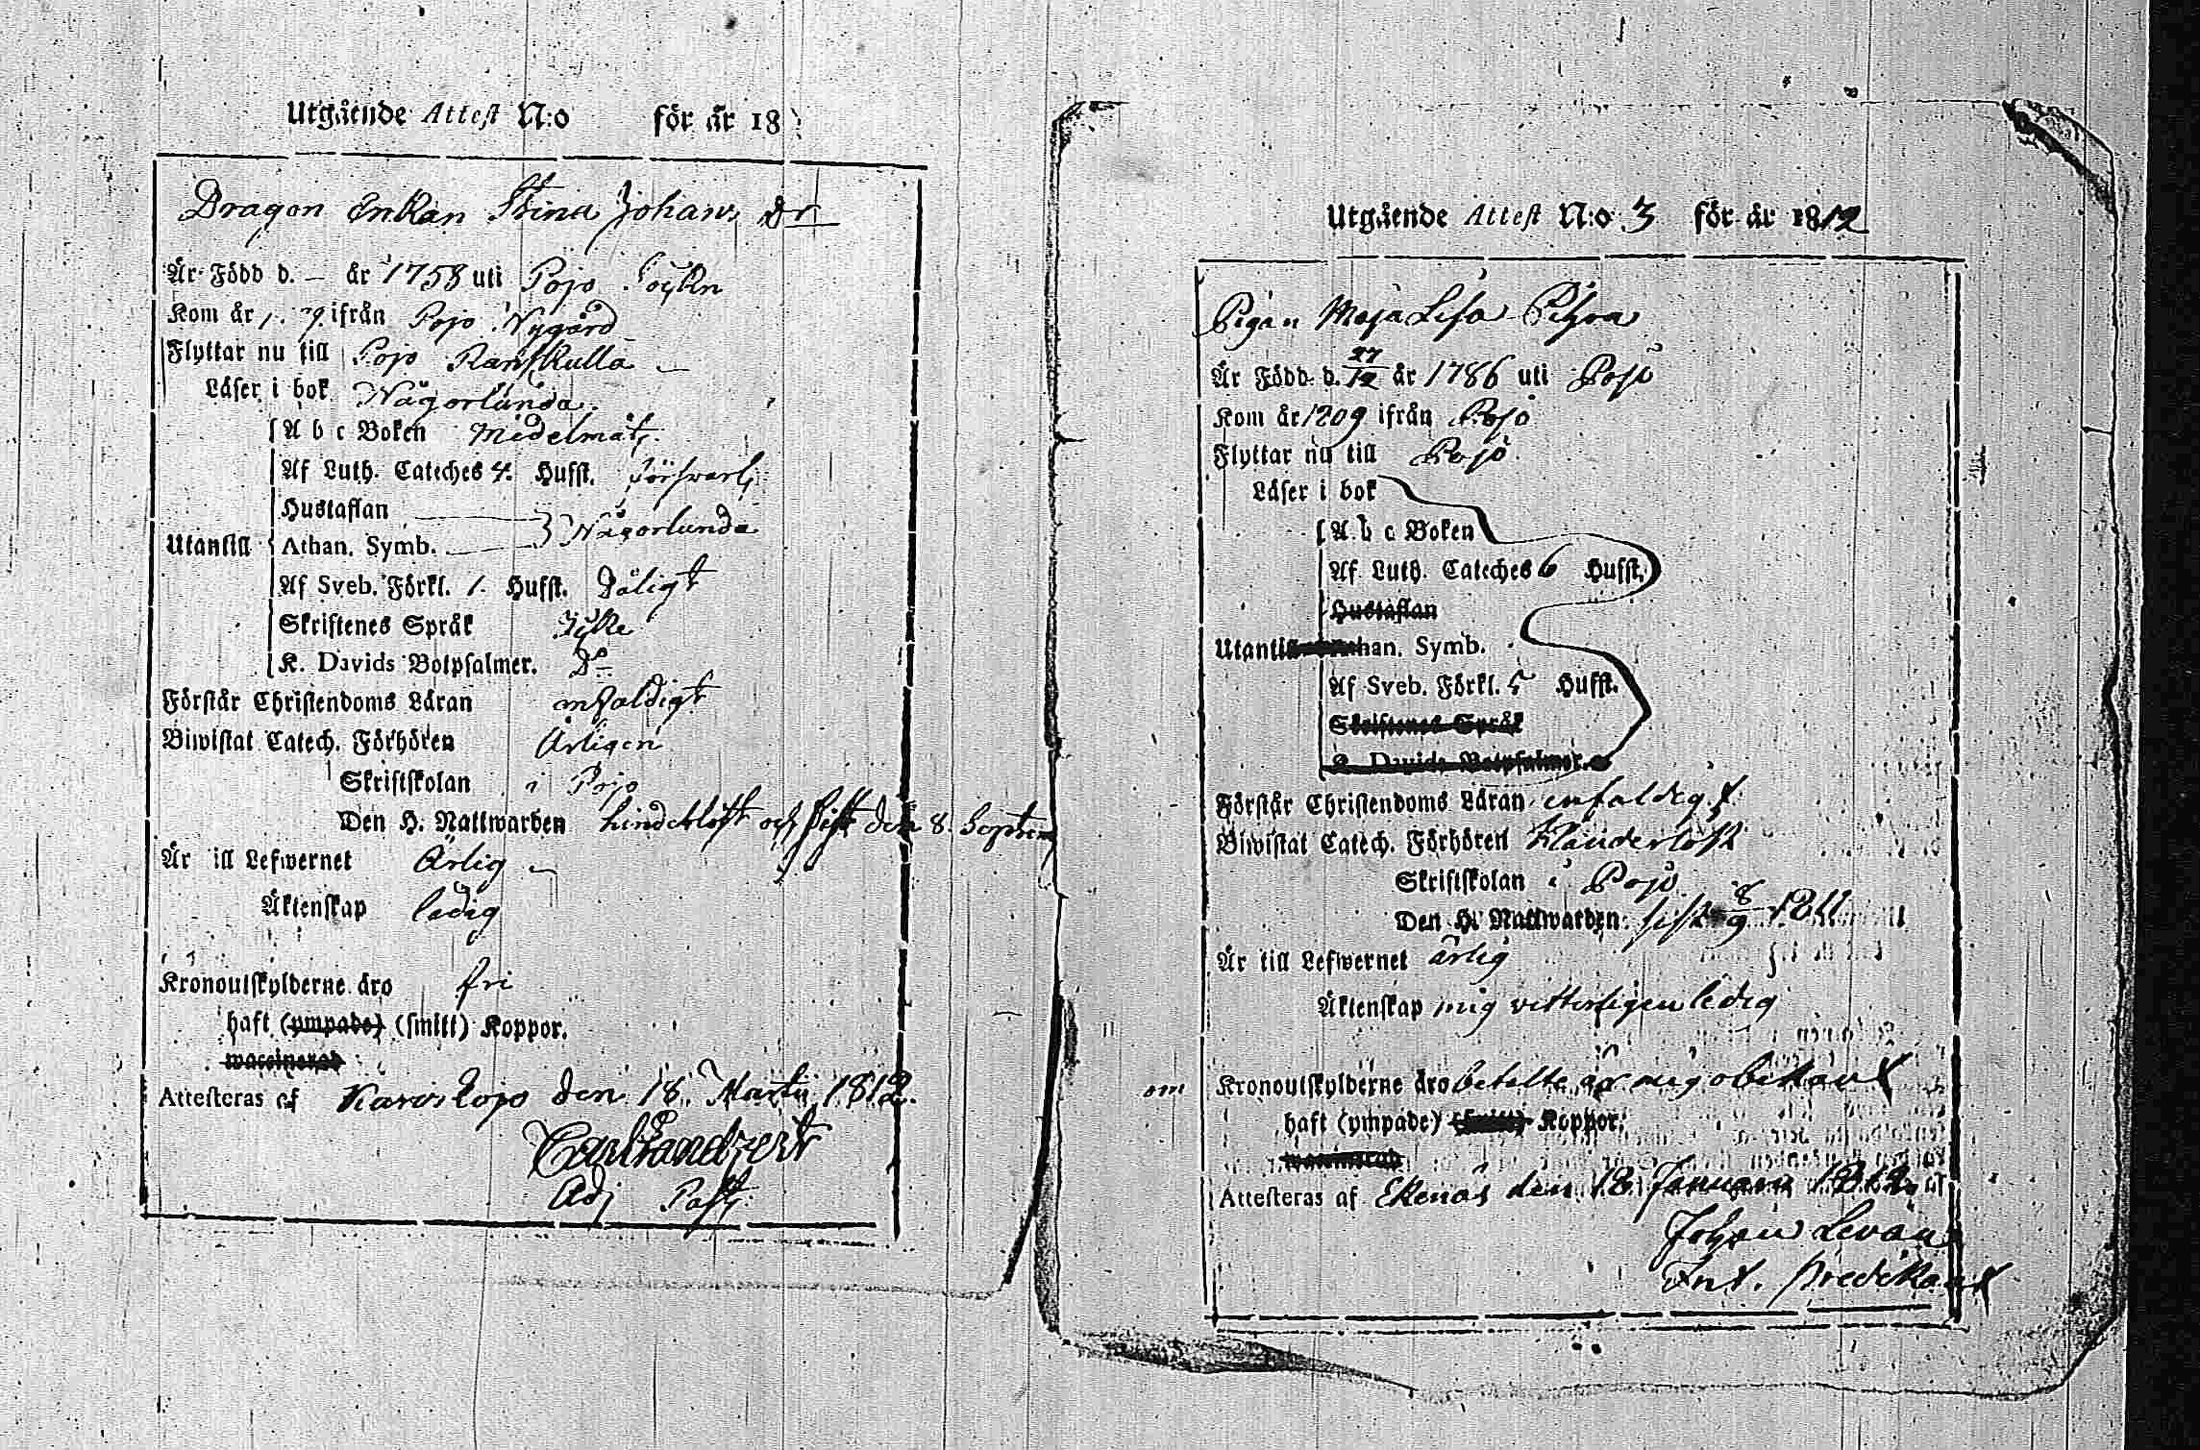 Utgående Attest N:o för år 18
Dragon Enkan Stina Johans Dr
Är Född d. — år 1758 uti Pojo Sockn
Kom år ifrån Pojo Nygård
Flyttar nu till Pojo Ranskulla
Läser i bok Någorlunda.
A b c Boken Medelmåt.
Af Luth. Cateches 4. Hufst. försvarl.
Hustaflan
Utantill Athan. Symb. Någorlunda
Af Sveb. Förkl. 1. Hufst. Dåligt
Skriftenes Språk Icke
K. Davids Botpsalmer. Do
Förstår Christendoms Läran enfaldigt
Biwistat Catech. Förhören Årligen
Skriftskolan i Pojo
Den H. Nattwarden hinderlöst och sist den 8. Septem
Är till Lefwernet Ärlig
Äktenskap ledig
Kronoutskylderne äro fri
haft (ympade) (smitt) Koppor.
waccinerad
Attesteras af Karislojo den 18. Martii 1812.
Carl
Adj Past.
Utgående Attest N:o 3 för år 1812
Pigan Maja Lisa
Är Född d. 27/12 år 1786 uti Pojo
Kom år 1809 ifrån Pojo
Flyttar nu till Pojo
Läser i bok
A b c Boken
Af Luth. Cateches 6 Hufst.
Hustaflan
Utantill Athan. Symb.
Af Sveb. Förkl. 5 Hufst.
Skriftenes Språk
K. Davids Botpsalmer.
Förstår Christendoms Läran enfaldigt
Biwistat Catech. Förhören klanderlöst
Skriftskolan i Pojo
Den H. Nattwarden sist 8/9 1811
Är till Lefwernet ärlig
Äktenskap mig vitterligen ledig
om Kronoutskylderne äro betalte är mig obekant
haft (ympade) (smitt) Koppor.
waccinerad
Attesteras af Ekenäs den 18 Januarii 1812
Johan Levan
Int. predikant